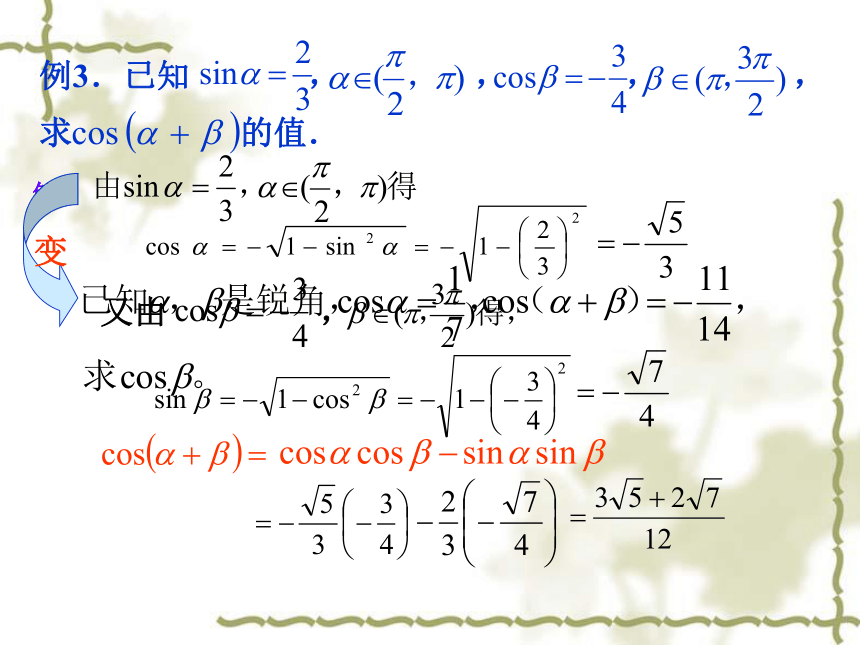 例3．已知 sinα = 2/3，α∈(π/2，π)，cosβ = −3/4，β∈(π，3π/2)，
求cos(α + β)的值．
由sinα = 2/3，α∈(π/2，π)得
cos α = −√(1 − sin²α) = −√(1 − (2/3)²) = −√5/3
变
已知α，β是锐角，cosα = 1/7，cos（α + β）= −11/14，
又由 cosβ = −3/4，β∈(π，3π/2)得，
求cosβ。
sin β = −√(1 − cos²β) = −√(1 − (−3/4)²) = −√7/4
cos(α + β) = cosα cos β − sinα sin β
= −√5/3 (−3/4) − 2/3 (−√7/4) = (3√5 + 2√7)/12